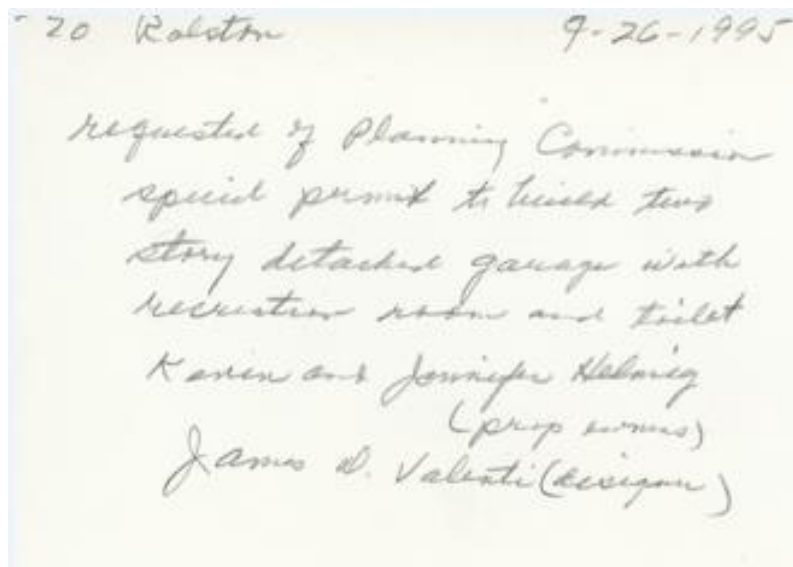 20 Ralston 9-26-1995
requested of Planning Commission
special permit to build two
story detached garage with
recreation room and toilet
and Jennifer Helmig
(prop owners)
James D. Valenti (designer)